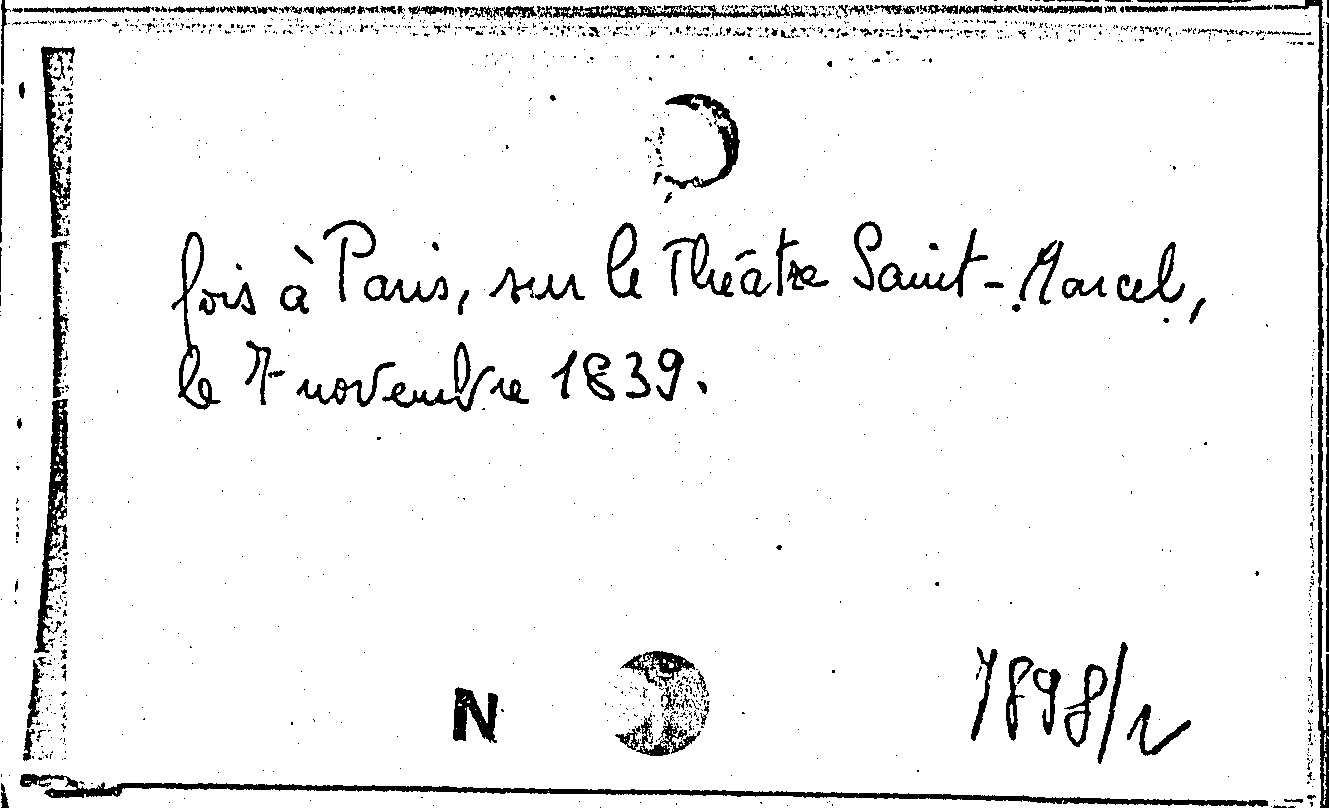 fois à Paris, sur le Théâtre Saint-Marcel,
le 7 novembre 1839.
N